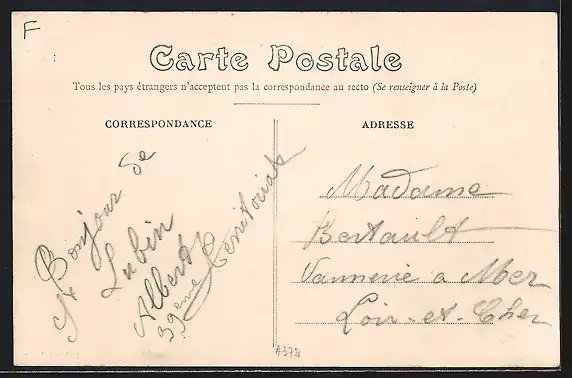 F
Carte Postale
Tous les pays étrangers n'acceptent pas la correspondance au recto (Se renseigner à la Poste)
CORRESPONDANCE
Bonjour de
St Lubin
Albert
39ème Territorial
ADRESSE
Madame
Bertault
Vannerie a Mer
Loir-et-Cher
A372